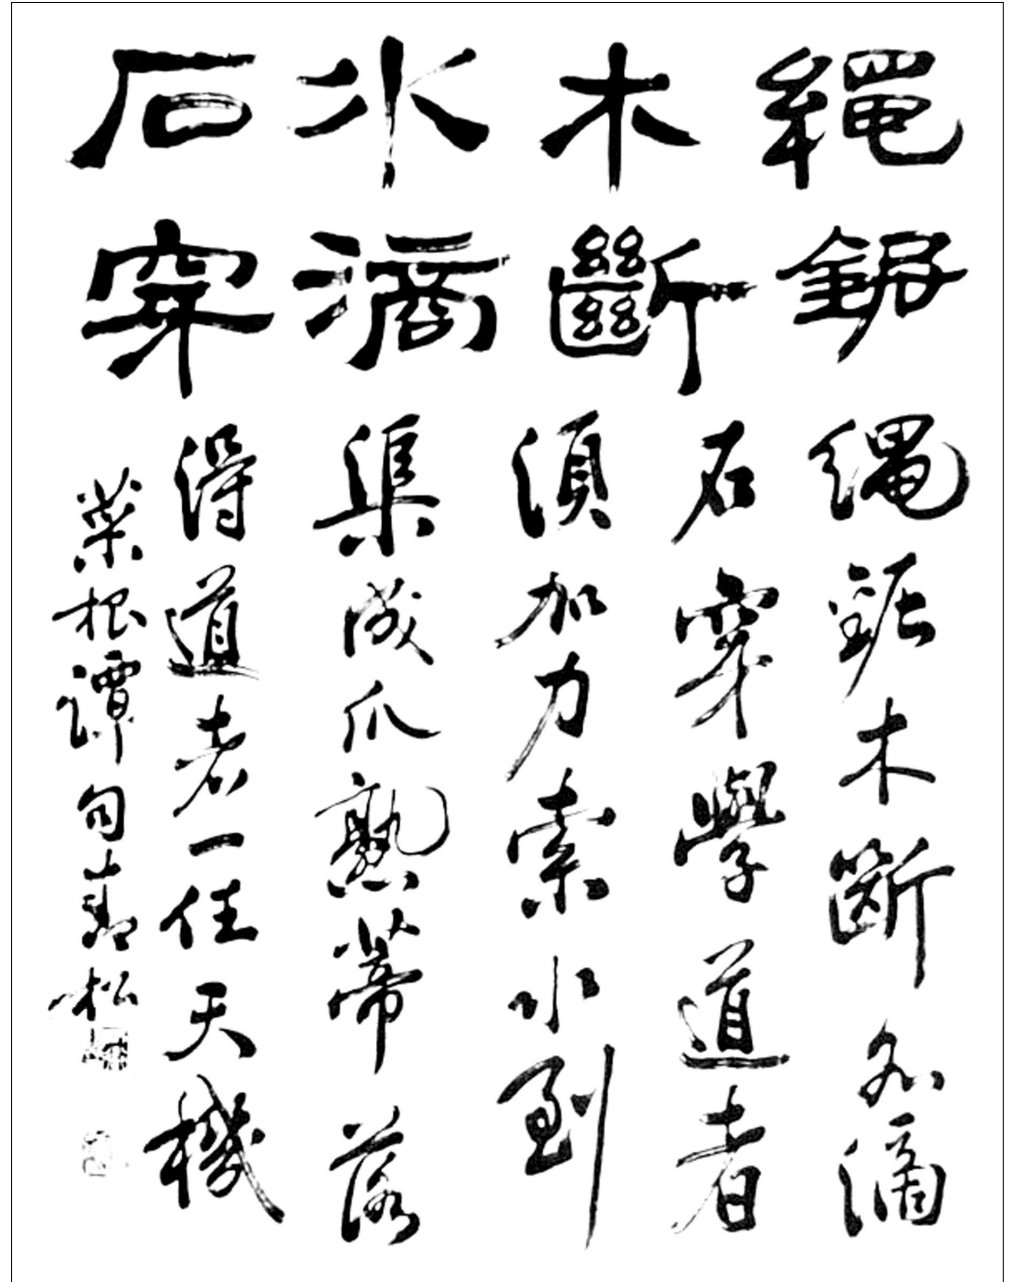 繩鋸
木斷
水滴
石穿
繩鋸木斷水滴
石穿學道者
須加力索水到
渠成瓜熟蒂落
得道者一任天機
菜根譚句壽松